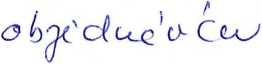 objednávku